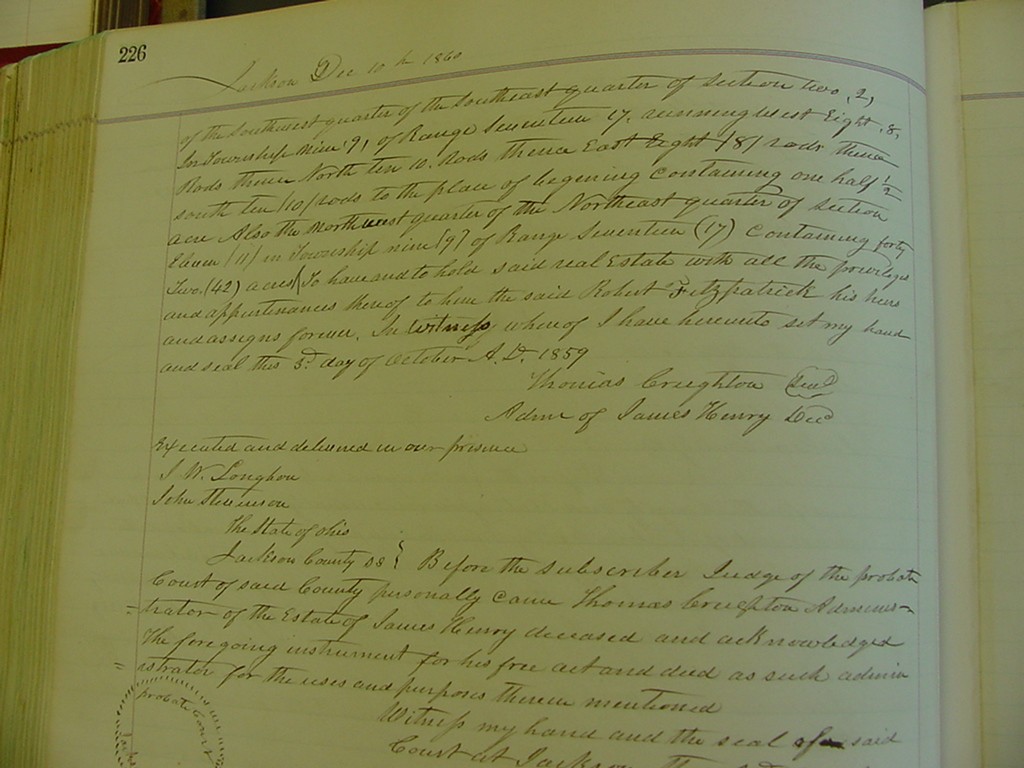 226
Jackson Dec 10th 1860
of the Southwest quarter of the Southeast quarter of Section two, 2,
In Township Nine '9, of Range Seventeen 17, running West Eight, 8,
Rods thence North ten 10. Rods thence East Eight /8/ rods thence
south ten /10/ rods to the place of begining Containing one half 1/2
acre Also the Northwest quarter of the Northeast quarter of Section
Eleven (11) in Township nine [9] of Range Seventeen (17) Containing forty
Two. (42) acres To have and to hold said real Estate with all the priveleges
and appertenances thereof to him the said Robert Fitzpatrick his heirs
and assigns forever. In Witness whereof I have hereunto set my hand
and seal this 3d day of October A.D. 1859
Thomas Creighton Seal
Admr of James Henry Decd
Executed and delivered in our presence
J. W. Longbon
John Stevenson
The State of Ohio
Jackson County SS } Before the subscriber Judge of the probate
Court of said County personally came Thomas Creighton Adminis-
=trator of the Estate of James Henry deceased and acknowledged
The foregoing instrument for his free act and deed as such admin
=istrator for the uses and purposes therein mentioned
Witness my hand and the seal of said
probate Court
Court at Jackson